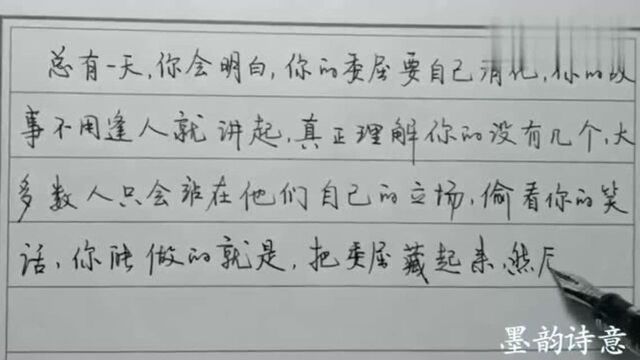 总有一天,你会明白,你的委屈要自己消化,你的故
事不用逢人就讲起,真正理解你的没有几个,大
多数人只会站在他们自己的立场,偷看你的笑
话,你能做的就是,把委屈藏起来,然
墨韵诗意